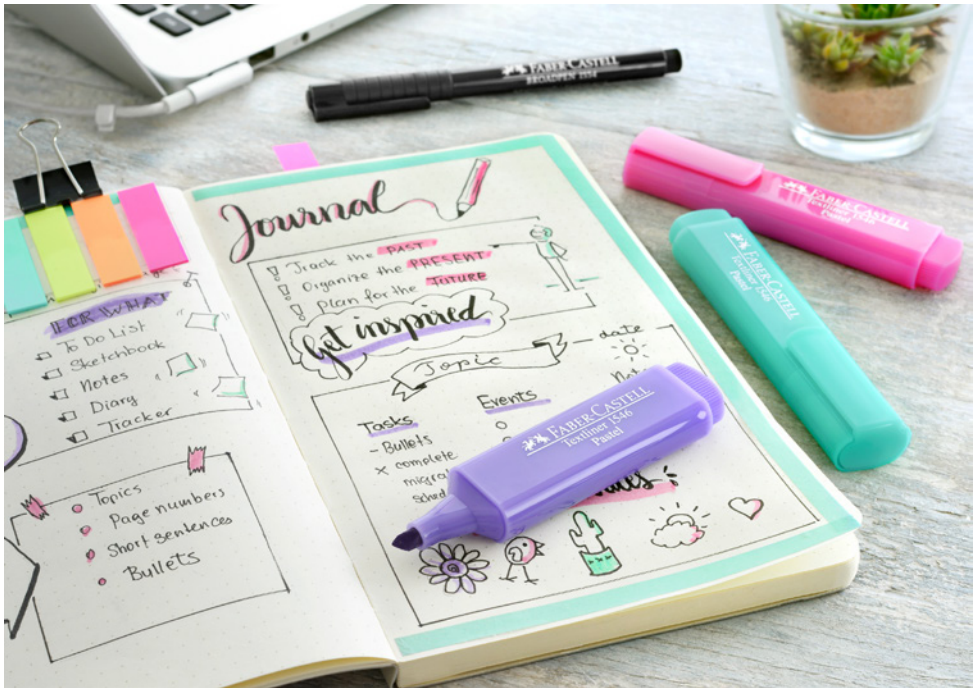 FABER-CASTELL
BROADPEN 1554
FABER-CASTELL
Textliner 1546
Pastel
FABER-CASTELL
Textliner 1546
Pastel
FOR WHAT
To Do List
Sketchbook
Notes
Diary
Tracker
Topics
Page numbers
Short sentences
Bullets
Journal
! Track the PAST
! Organize the PRESENT
! Plan for the FUTURE
Get inspired
Topic
date
Tasks
Events
- Bullets
x complete
FABER-CASTELL
Textliner 1546
Pastel